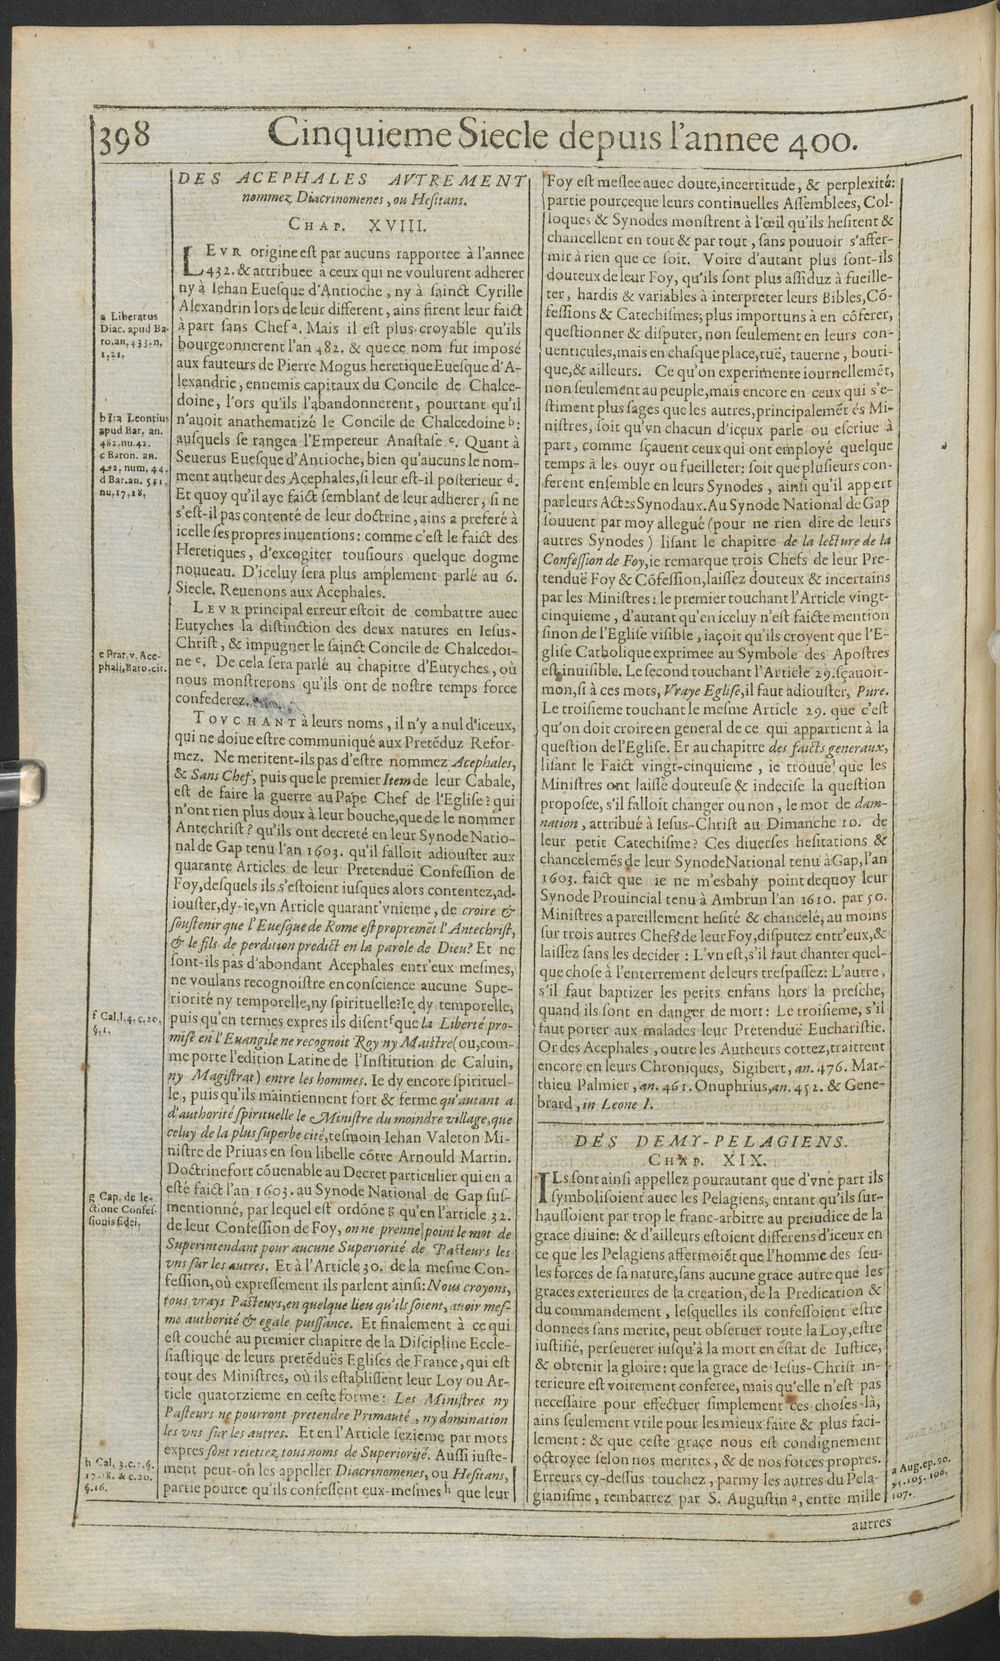 398 Cinquieme Siecle depuis l'annee 400.
DES ACEPHALES AVTREMENT
nommez Diacrinomenes, ou Hesitans.
CHAP. XVIII.
LEVR origine est par aucuns rapportee à l'annee
432. & attribuee à ceux qui ne voulurent adherer
ny à Iehan Euesque d'Antioche, ny à sainct Cyrille
Alexandrin lors de leur different, ains firent leur faict
à part sans Chef a. Mais il est plus croyable qu'ils
bourgeonnerent l'an 482. & que ce nom fut imposé
aux fauteurs de Pierre Mogus heretique Euesque d'A-
lexandrie, ennemis capitaux du Concile de Chalce-
doine, l'ors qu'ils l'abandonnerent, pourtant qu'il
n'auoit anathematizé le Concile de Chalcedoine b:
ausquels se rangea l'Empereur Anastase c. Quant à
Seuerus Euesque d'Antioche, bien qu'aucuns le nom-
ment autheur des Acephales, si leur est-il posterieur d.
Et quoy qu'il aye faict semblant de leur adherer, si ne
s'est-il pas contenté de leur doctrine, ains a preferé à
icelle ses propres inuentions: comme c'est le faict des
Heretiques, d'excogiter tousiours quelque dogme
nouueau. D'iceluy sera plus amplement parlé au 6.
Siecle. Reuenons aux Acephales.
LEVR principal erreur estoit de combattre auec
Eutyches la distinction des deux natures en Iesus-
Christ, & impugner le sainct Concile de Chalcedoi-
ne e. De cela sera parlé au chapitre d'Eutyches, où
nous monstrerons qu'ils ont de nostre temps force
confederez.
TOVCHANT à leurs noms, il n'y a nul d'iceux,
qui ne doiue estre communiqué aux Pretēduz Refor-
mez. Ne meritent-ils pas d'estre nommez Acephales,
& Sans Chef, puis que le premier Item de leur Cabale,
est de faire la guerre au Pape Chef de l'Eglise? qui
n'ont rien plus doux à leur bouche, que de le nommer
Antechrist? qu'ils ont decreté en leur Synode Natio-
nal de Gap tenu l'an 1603. qu'il falloit adiouster aux
quarante Articles de leur Pretenduë Confession de
Foy, desquels ils s'estoient iusques alors contentez, ad-
iouster, dy-ie, vn Article quarant'vnieme, de croire &
soustenir que l'Euesque de Rome est propremēt l'Antechrist,
& le fils de perdition predict en la parole de Dieu? Et ne
sont-ils pas d'abondant Acephales entr'eux mesmes,
ne voulans recognoistre en conscience aucune Supe-
riorité ny temporelle, ny spirituelle: Ie dy temporelle,
puis qu'en termes expres ils disent f que la Liberté pro-
mise en l'Euangile ne recognoit Roy ny Maistre (ou, com-
me porte l'edition Latine de l'Institution de Caluin,
ny Magistrat) entre les hommes. Ie dy encore spirituel-
le, puis qu'ils maintiennent fort & ferme qu'autant a
d'authorité spirituelle le Ministre du moindre village, que
celuy de la plus superbe cité, tesmoin Iehan Valeton Mi-
nistre de Priuas en son libelle cōtre Arnould Martin.
Doctrine fort cōuenable au Decret particulier qui en a
esté faict l'an 1603. au Synode National de Gap sus-
mentionné, par lequel est ordōné g qu'en l'article 32.
de leur Confession de Foy, on ne prenne point le mot de
Superintendant pour aucune Superiorité de Pasteurs les
vns sur les autres. Et à l'Article 30. de la mesme Con-
fession, où expressement ils parlent ainsi: Nous croyons,
tous vrays Pasteurs, en quelque lieu qu'ils soient, auoir mes-
me authorité & egale puissance. Et finalement à ce qui
est couché au premier chapitre de la Discipline Eccle-
siastique de leurs pretēduës Eglises de France, qui est
tout des Ministres, où ils establissent leur Loy ou Ar-
ticle quatorzieme en ceste forme: Les Ministres ny
Pasteurs ne pourront pretendre Primauté, ny domination
les vns sur les autres. Et en l'Article sezieme par mots
expres sont reiettez tous noms de Superiorité. Aussi iuste-
ment peut-on les appeller Diacrinomenes, ou Hesitans,
partie pource qu'ils confessent eux-mesmes h que leur
a Liberatus
Diac. apud Ba-
ro. an. 433. n.
1. 21.
b Ita Leontius
apud Bar. an.
482. nu. 42.
c Baron. an.
492. num. 44.
d Bar. an. 511.
nu. 17, 18.
e Prat. v. Ace-
phali, Baro. cit.
f Cal. l. 4. c. 20.
§. 1.
g Cap. de le-
ctione Confes-
sionis fidei.
h Cal. 3. c. 2. §.
17. 18. & c. 20.
§. 16.
Foy est meslee auec doute, incertitude, & perplexité:
partie pourçeque leurs continuelles Assemblees, Col-
loques & Synodes monstrent à l'œil qu'ils hesitent &
chancellent en tout & par tout, sans pouuoir s'affer-
mir à rien que ce soit. Voire d'autant plus sont-ils
douteux de leur Foy, qu'ils sont plus assiduz à fueille-
ter, hardis & variables à interpreter leurs Bibles, Cō-
fessions & Catechismes; plus importuns à en cōferer,
questionner & disputer, non seulement en leurs con-
uenticules, mais en chasque place, ruë, tauerne, bouti-
que, & ailleurs. Ce qu'on experimente iournellemēt,
non seulement au peuple, mais encore en ceux qui s'e-
stiment plus sages que les autres, principalemēt és Mi-
nistres, soit qu'vn chacun d'iceux parle ou escriue à
part, comme sçauent ceux qui ont employé quelque
temps à les ouyr ou fueilleter; soit que plusieurs con-
ferent ensemble en leurs Synodes, ainsi qu'il appert
par leurs Actes Synodaux. Au Synode National de Gap
souuent par moy allegué (pour ne rien dire de leurs
autres Synodes) lisant le chapitre de la lecture de la
Confession de Foy, ie remarque trois Chefs de leur Pre-
tenduë Foy & Cōfession, laissez douteux & incertains
par les Ministres: le premier touchant l'Article vingt-
cinquieme, d'autant qu'en iceluy n'est faicte mention
sinon de l'Eglise visible, iaçoit qu'ils croyent que l'E-
glise Catholique exprimee au Symbole des Apostres
est inuisible. Le second touchant l'Article 29. sçauoir-
mon, si à ces mots, Vraye Eglise, il faut adiouster, Pure.
Le troisieme touchant le mesme Article 29. que c'est
qu'on doit croire en general de ce qui appartient à la
question de l'Eglise. Et au chapitre des faicts generaux,
lisant le Faict vingt-cinquieme, ie trouue que les
Ministres ont laissé douteuse & indecise la question
proposee, s'il falloit changer ou non, le mot de dam-
nation, attribué à Iesus-Christ au Dimanche 10. de
leur petit Catechisme? Ces diuerses hesitations &
chancelemēs de leur Synode National tenu à Gap, l'an
1603. faict que ie ne m'esbahy point dequoy leur
Synode Prouincial tenu à Ambrun l'an 1610. par 50.
Ministres a pareillement hesité & chancelé, au moins
sur trois autres Chefs de leur Foy, disputez entr'eux, &
laissez sans les decider: L'vn est, s'il faut chanter quel-
que chose à l'enterrement de leurs trespassez: L'autre,
s'il faut baptizer les petits enfans hors la presche,
quand ils sont en danger de mort: Le troisieme, s'il
faut porter aux malades leur Pretenduë Eucharistie.
Or des Acephales, outre les Autheurs cottez, traittent
encore en leurs Chroniques, Sigibert, an. 476. Mat-
thieu Palmier, an. 461. Onuphrius, an. 452. & Gene-
brard, in Leone I.
DES DEMY-PELAGIENS.
CHAP. XIX.
ILs sont ainsi appellez pourautant que d'vne part ils
symbolisoient auec les Pelagiens, entant qu'ils sur-
haussoient par trop le franc-arbitre au preiudice de la
grace diuine: & d'ailleurs estoient differens d'iceux en
ce que les Pelagiens affermoiēt que l'homme des seu-
les forces de sa nature, sans aucune grace autre que les
graces exterieures de la creation, de la Predication &
du commandement, lesquelles ils confessoient estre
donnees sans merite, peut obseruer toute la Loy, estre
iustifié, perseuerer iusqu'à la mort en estat de Iustice,
& obtenir la gloire: que la grace de Iesus-Christ in-
terieure est voirement conferee, mais qu'elle n'est pas
necessaire pour effectuer simplement ces choses-là,
ains seulement vtile pour les mieux faire & plus faci-
lement: & que ceste grace nous est condignement
octroyee selon nos merites, & de nos forces propres.
Erreurs cy-dessus touchez, parmy les autres du Pela-
gianisme, rembarrez par S. Augustin a, entre mille
a Aug. ep. 90.
95. 105. 106.
107.
autres